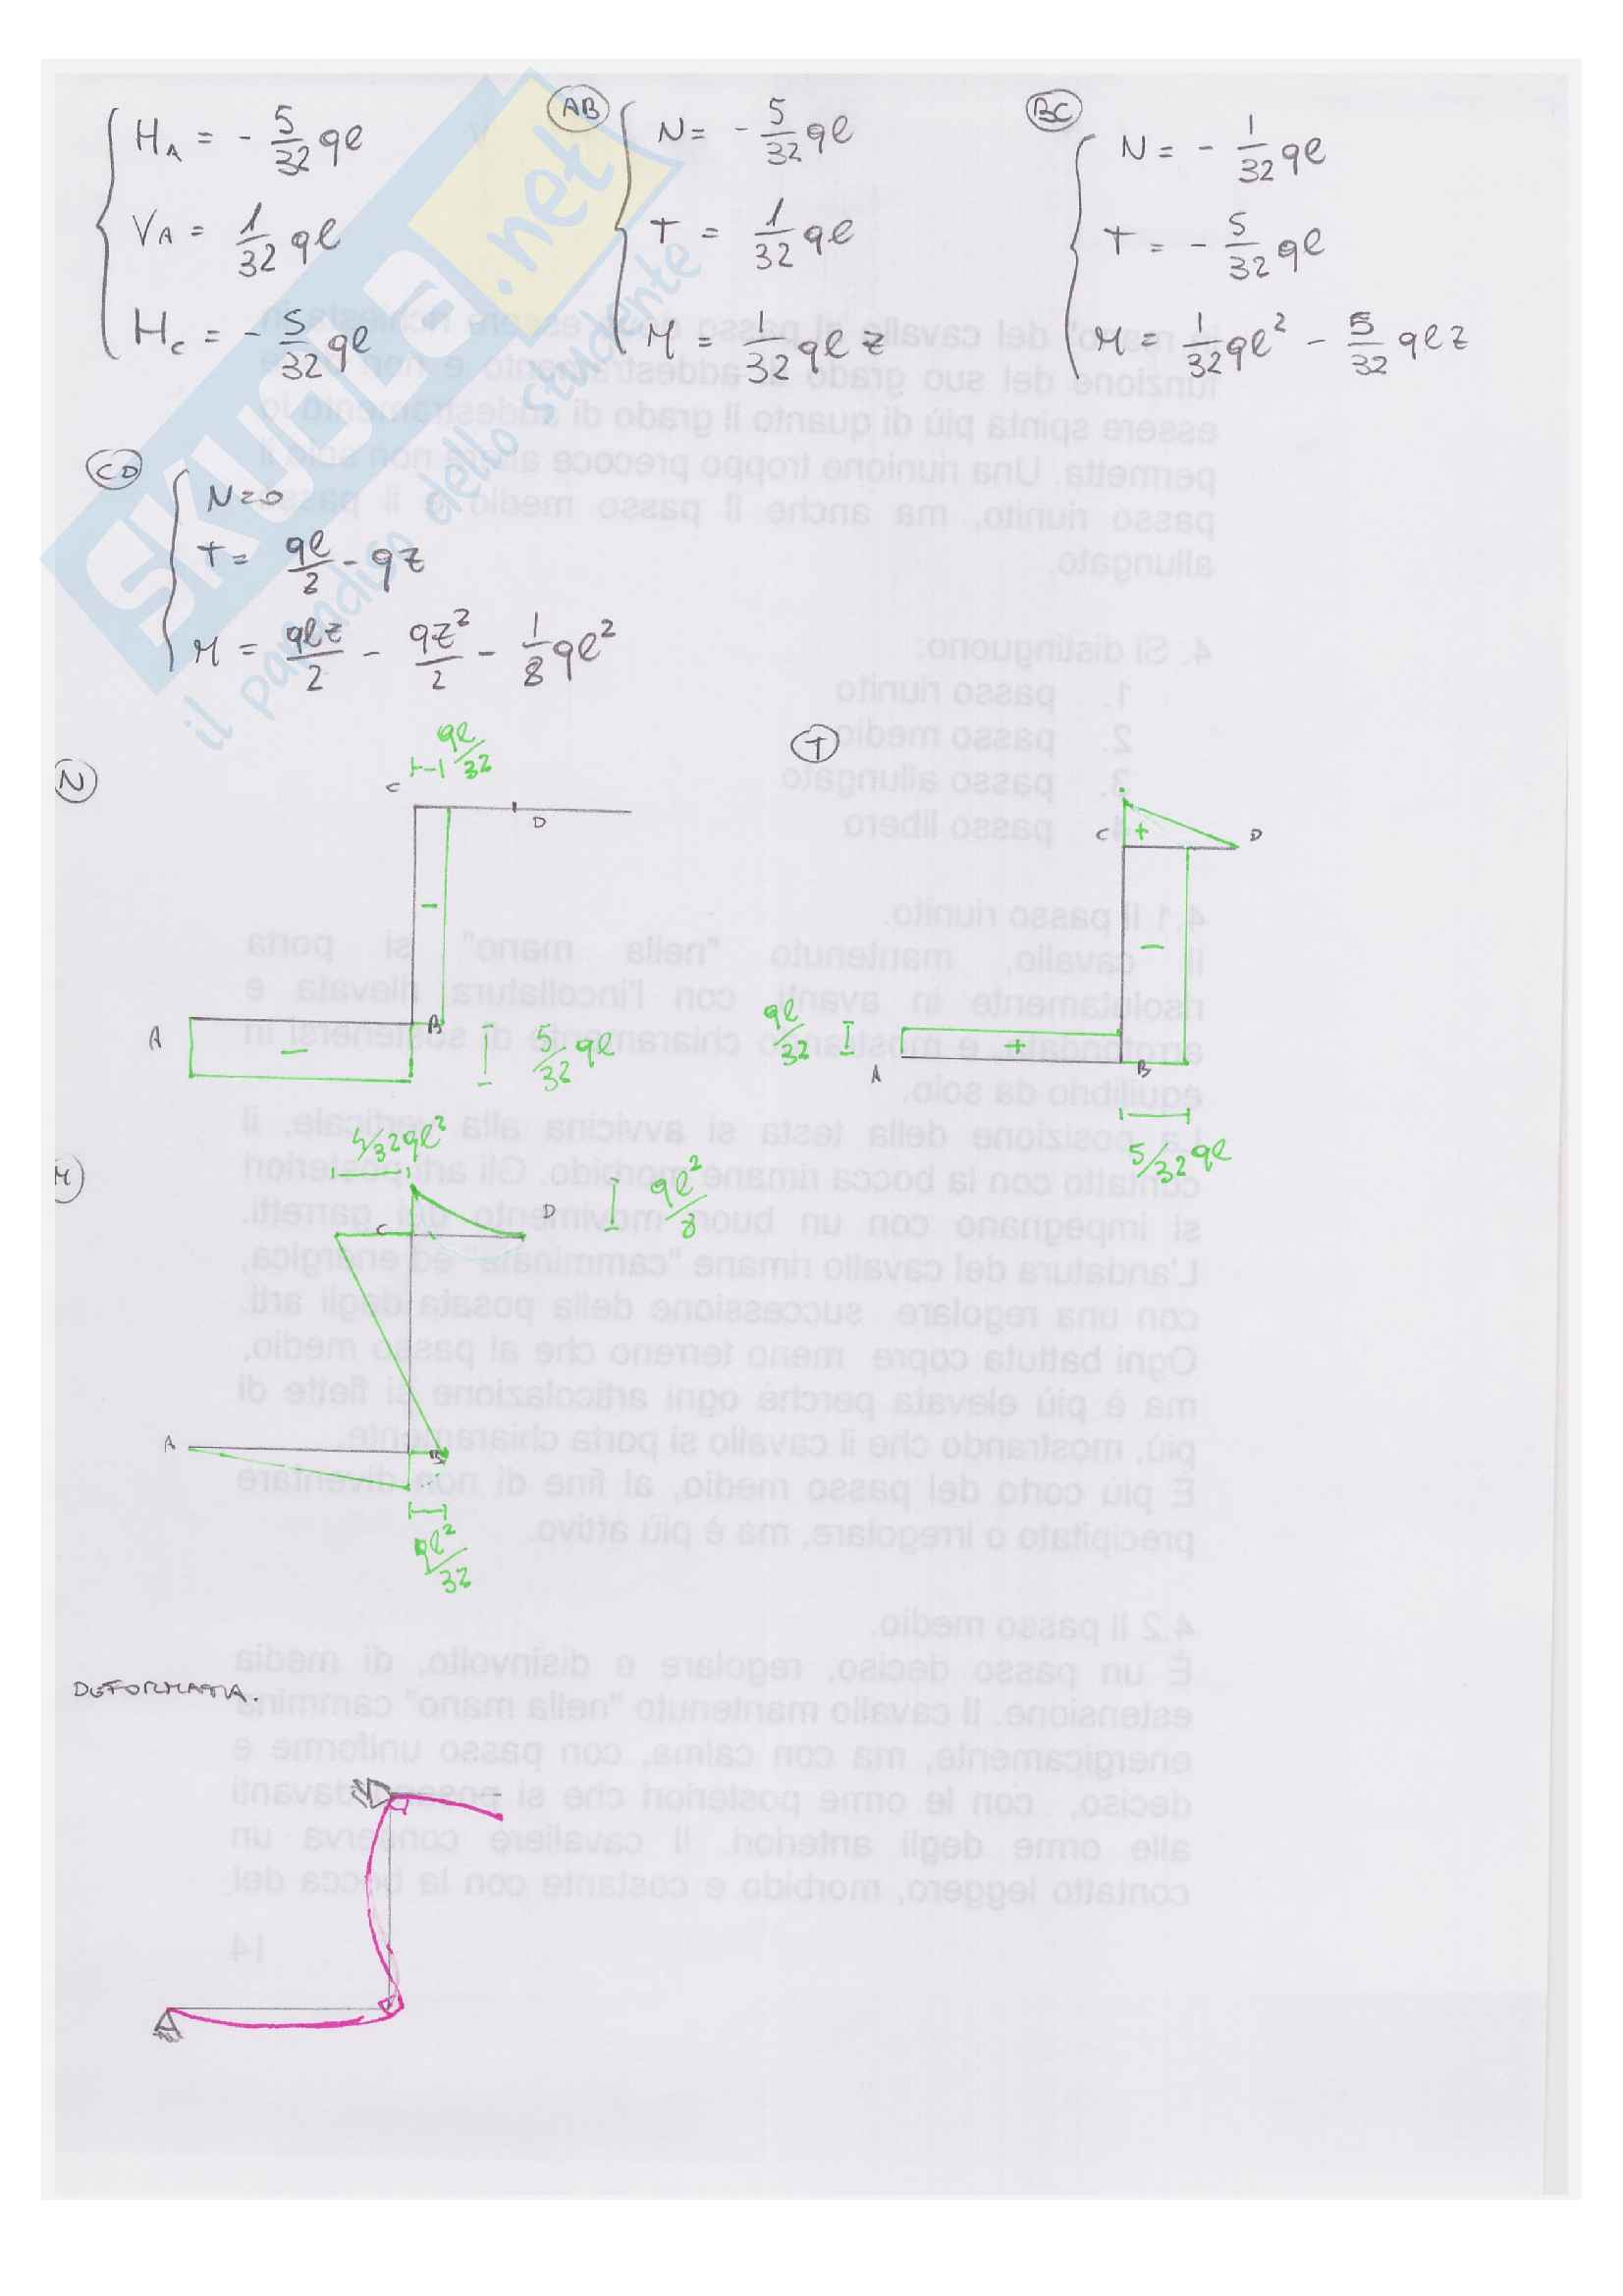 H_A = - 5/32 qℓ
V_A = 1/32 qℓ
H_C = - 5/32 qℓ
AB
N = - 5/32 qℓ
T = 1/32 qℓ
M = 1/32 qℓ z
BC
N = - 1/32 qℓ
T = - 5/32 qℓ
M = 1/32 qℓ² - 5/32 qℓz
CD
N=0
T = qℓ/2 - qz
M = qℓz/2 - qz²/2 - 1/8 qℓ²
SKUOLA.net
il paradiso dello studente
N
qℓ/32
C
D
-
A
B
-
5/32 qℓ
T
C
+
D
-
qℓ/32
+
A
B
5/32 qℓ
M
4/32 qℓ²
C
D
qℓ²/8
A
B
qℓ²/32
DEFORMATA.
funzione del suo grado di addestramento e non
essere spinta più di quanto il grado di addestramento lo
permetta. Una riunione troppo precoce altera non solo il
passo riunito, ma anche il passo medio e il passo
allungato.
4. Si distinguono:
1. passo riunito
2. passo medio
3. passo allungato
4. passo libero
4.1 Il passo riunito.
Il cavallo, mantenuto "nella mano" si porta
risolutamente in avanti con l'incollatura rilevata e
arrotondata, e mostrando chiaramente di sostenersi in
equilibrio da solo.
La posizione della testa si avvicina alla verticale, il
contatto con la bocca rimane morbido. Gli arti posteriori
si impegnano con un buon movimento dei garretti.
L'andatura del cavallo rimane "camminata" ed energica,
con una regolare successione della posata degli arti.
Ogni battuta copre meno terreno che al passo medio,
ma è più elevata perché ogni articolazione si flette di
più, mostrando che il cavallo si porta chiaramente.
È più corto del passo medio, al fine di non diventare
precipitato o irregolare, ma è più attivo.
4.2 Il passo medio.
È un passo deciso, regolare e disinvolto, di media
estensione. Il cavallo mantenuto "nella mano" cammina
energicamente, ma con calma, con passo uniforme e
deciso, con le orme posteriori che si posano davanti
alle orme degli anteriori. Il cavaliere conserva un
contatto leggero, morbido e costante con la bocca del
14